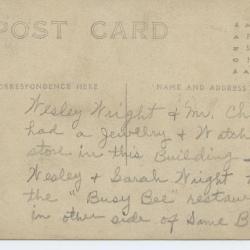 POST CARD
CORRESPONDENCE HERE
NAME AND ADDRESS
Wesley Wright & Mr. Ch
had a Jewelry & Watch
store in this Building
Wesley & Sarah Wright
the "Busy Bee" restau
in other side of Same B